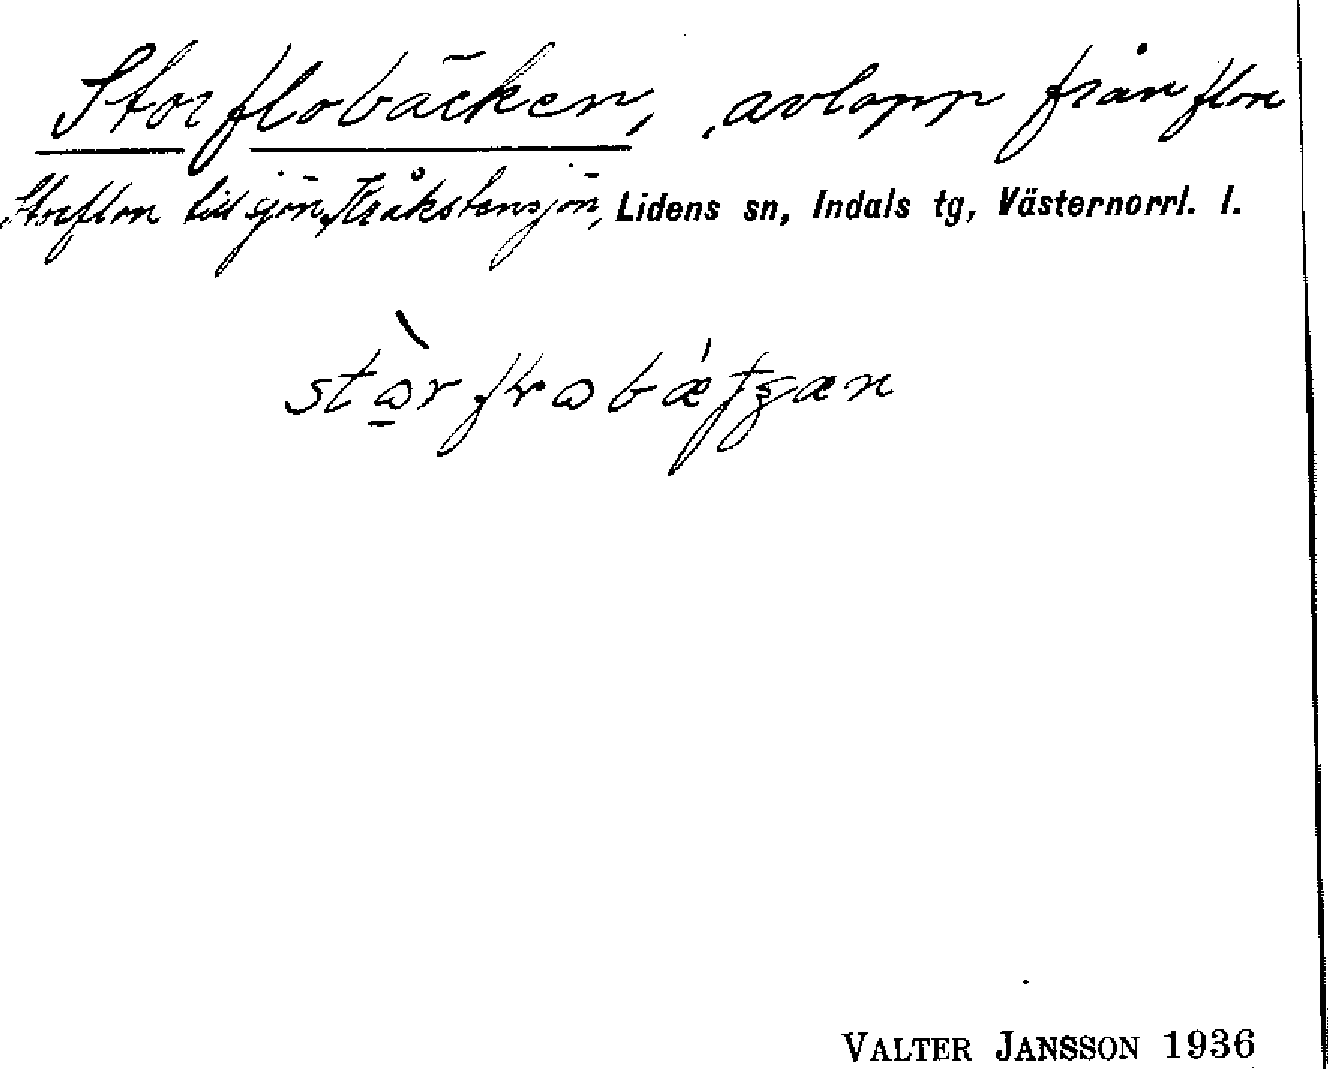 Storflobäcken, avlopp från flon
Storflon till sjön Kråkstensjön, Lidens sn, Indals tg, Västernorrl. l.
VALTER JANSSON 1936